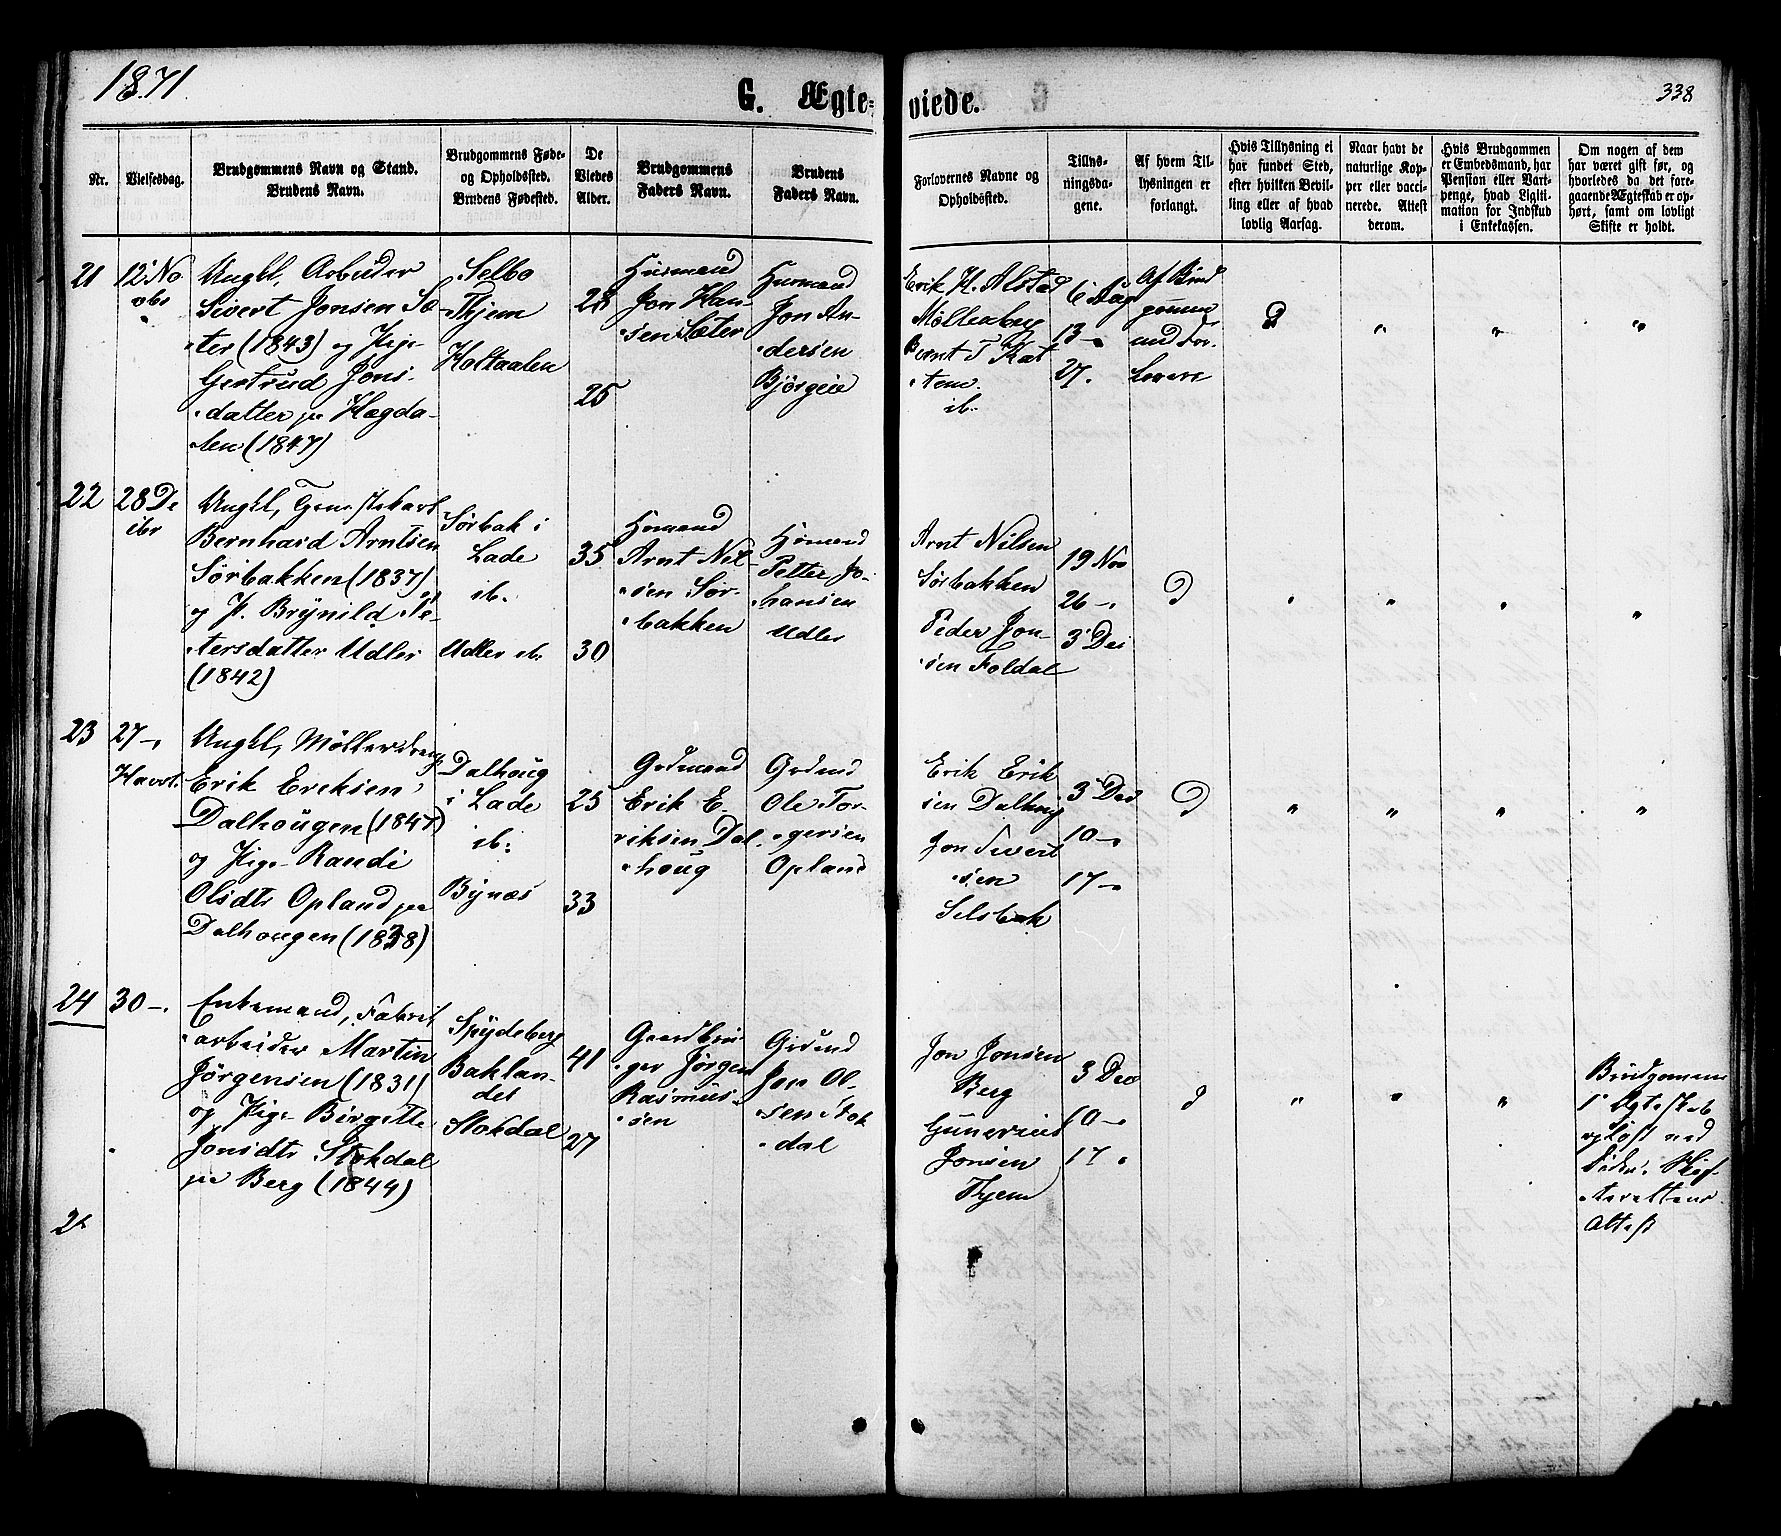 1871.
G. Ægte-
viede.
338
Nr.
Vielsesdag.
Brudgommens Navn og Stand.
Brudens Navn.
Brudgommens Føde-
og Opholdssted.
Brudens Fødested.
De
Viedes
Alder.
Brudgommens
Faders Navn.
Brudens
Faders Navn.
Forlovernes Navne og
Opholdssted.
Tillys-
ningsda-
gene.
Af hvem Til-
lysningen er
forlangt.
Hvis Tillysning ei
har fundet Sted,
efter hvilken Bevil-
ling eller af hvad
lovlig Aarsag.
Naar havt de
naturlige Kop-
per eller vacci-
nerede. Attest
derom.
Hvis Brudgommen
er Embedsmand, har
Pension eller Vart-
penge, hvad Ligti-
mation for Indskud
i Enkekassen.
Om nogen af dem
har været gift før, og
hvorledes da det fore-
gaaende Ægteskab er op-
hørt, samt om lovligt
Skifte er holdt.
21
12 No
vbr
Ungkl, Arbeider
Sivert Jonsen Sæ-
ter (1843) og Pige
Gertrud Jons-
datter pa Hagda-
len (1847)
Selbo
Tyem
Holtaalen
28
25
Husmand
Jon Han-
sen Sæter
Husmand
Jon An-
dersen
Bjørgeie
Erik H. Alstad
Møllenberg
Bernt T Kat
tem
ib.
6
13 -
27.
Af Brud
gommen
med For-
lovere
22
28 De
cbr
Ungkl,
Bernhard Arntsen
Sørbakken (1837)
og P. Brynild Pe-
tersdatter Udler
(1842)
Sørbak i
Lade
ib.
Udler ib.
35
30
Husmand
Arnt Nil-
sen Sør-
bakken
Husmand
Petter Jo-
hansen
Udler
Arnt Nilsen
Sørbakken
Peder Jon-
sen Foldal
19 Nov
26 -
3 Dec
23
27 -
Havst.
Ungkl, Møllersvend
Erik Ereksen
Dalhougen (1847)
og Pige Randi
Olsdtr Opland pa
Dalhougen (1838)
Dalhoug
i Lade
ib.
Bynæs
25
33
Grdmand
Erik E-
riksen Dal-
houg
Grdmd
Ole Tor-
gersen
Opland
Erik Erik
sen Dalhoug
Jon Sivert
sen
Selsbak
3 Dec
10 -
17 -
24
30 -.
Enkemand, Fabrik
arbeider Martin
Jørgensen (1831)
og Pige Birgitte
Jonsdtr Stokdal
pa Berg (1844)
Spydeberg
Baklan-
det
Stokdal
41
27
Gaardbru
ger Jørgen
Rasmus-
sen
Grdmd
Jon Ol-
sen Stok
dal
Jon Jonsen
Berg
Gunerius
Jonsen
Tyem
3 Dec
10 -
17 -
Brudgommens
1ste Ægteskab
opløst ved
Døden. Skif-
terettens
Attest